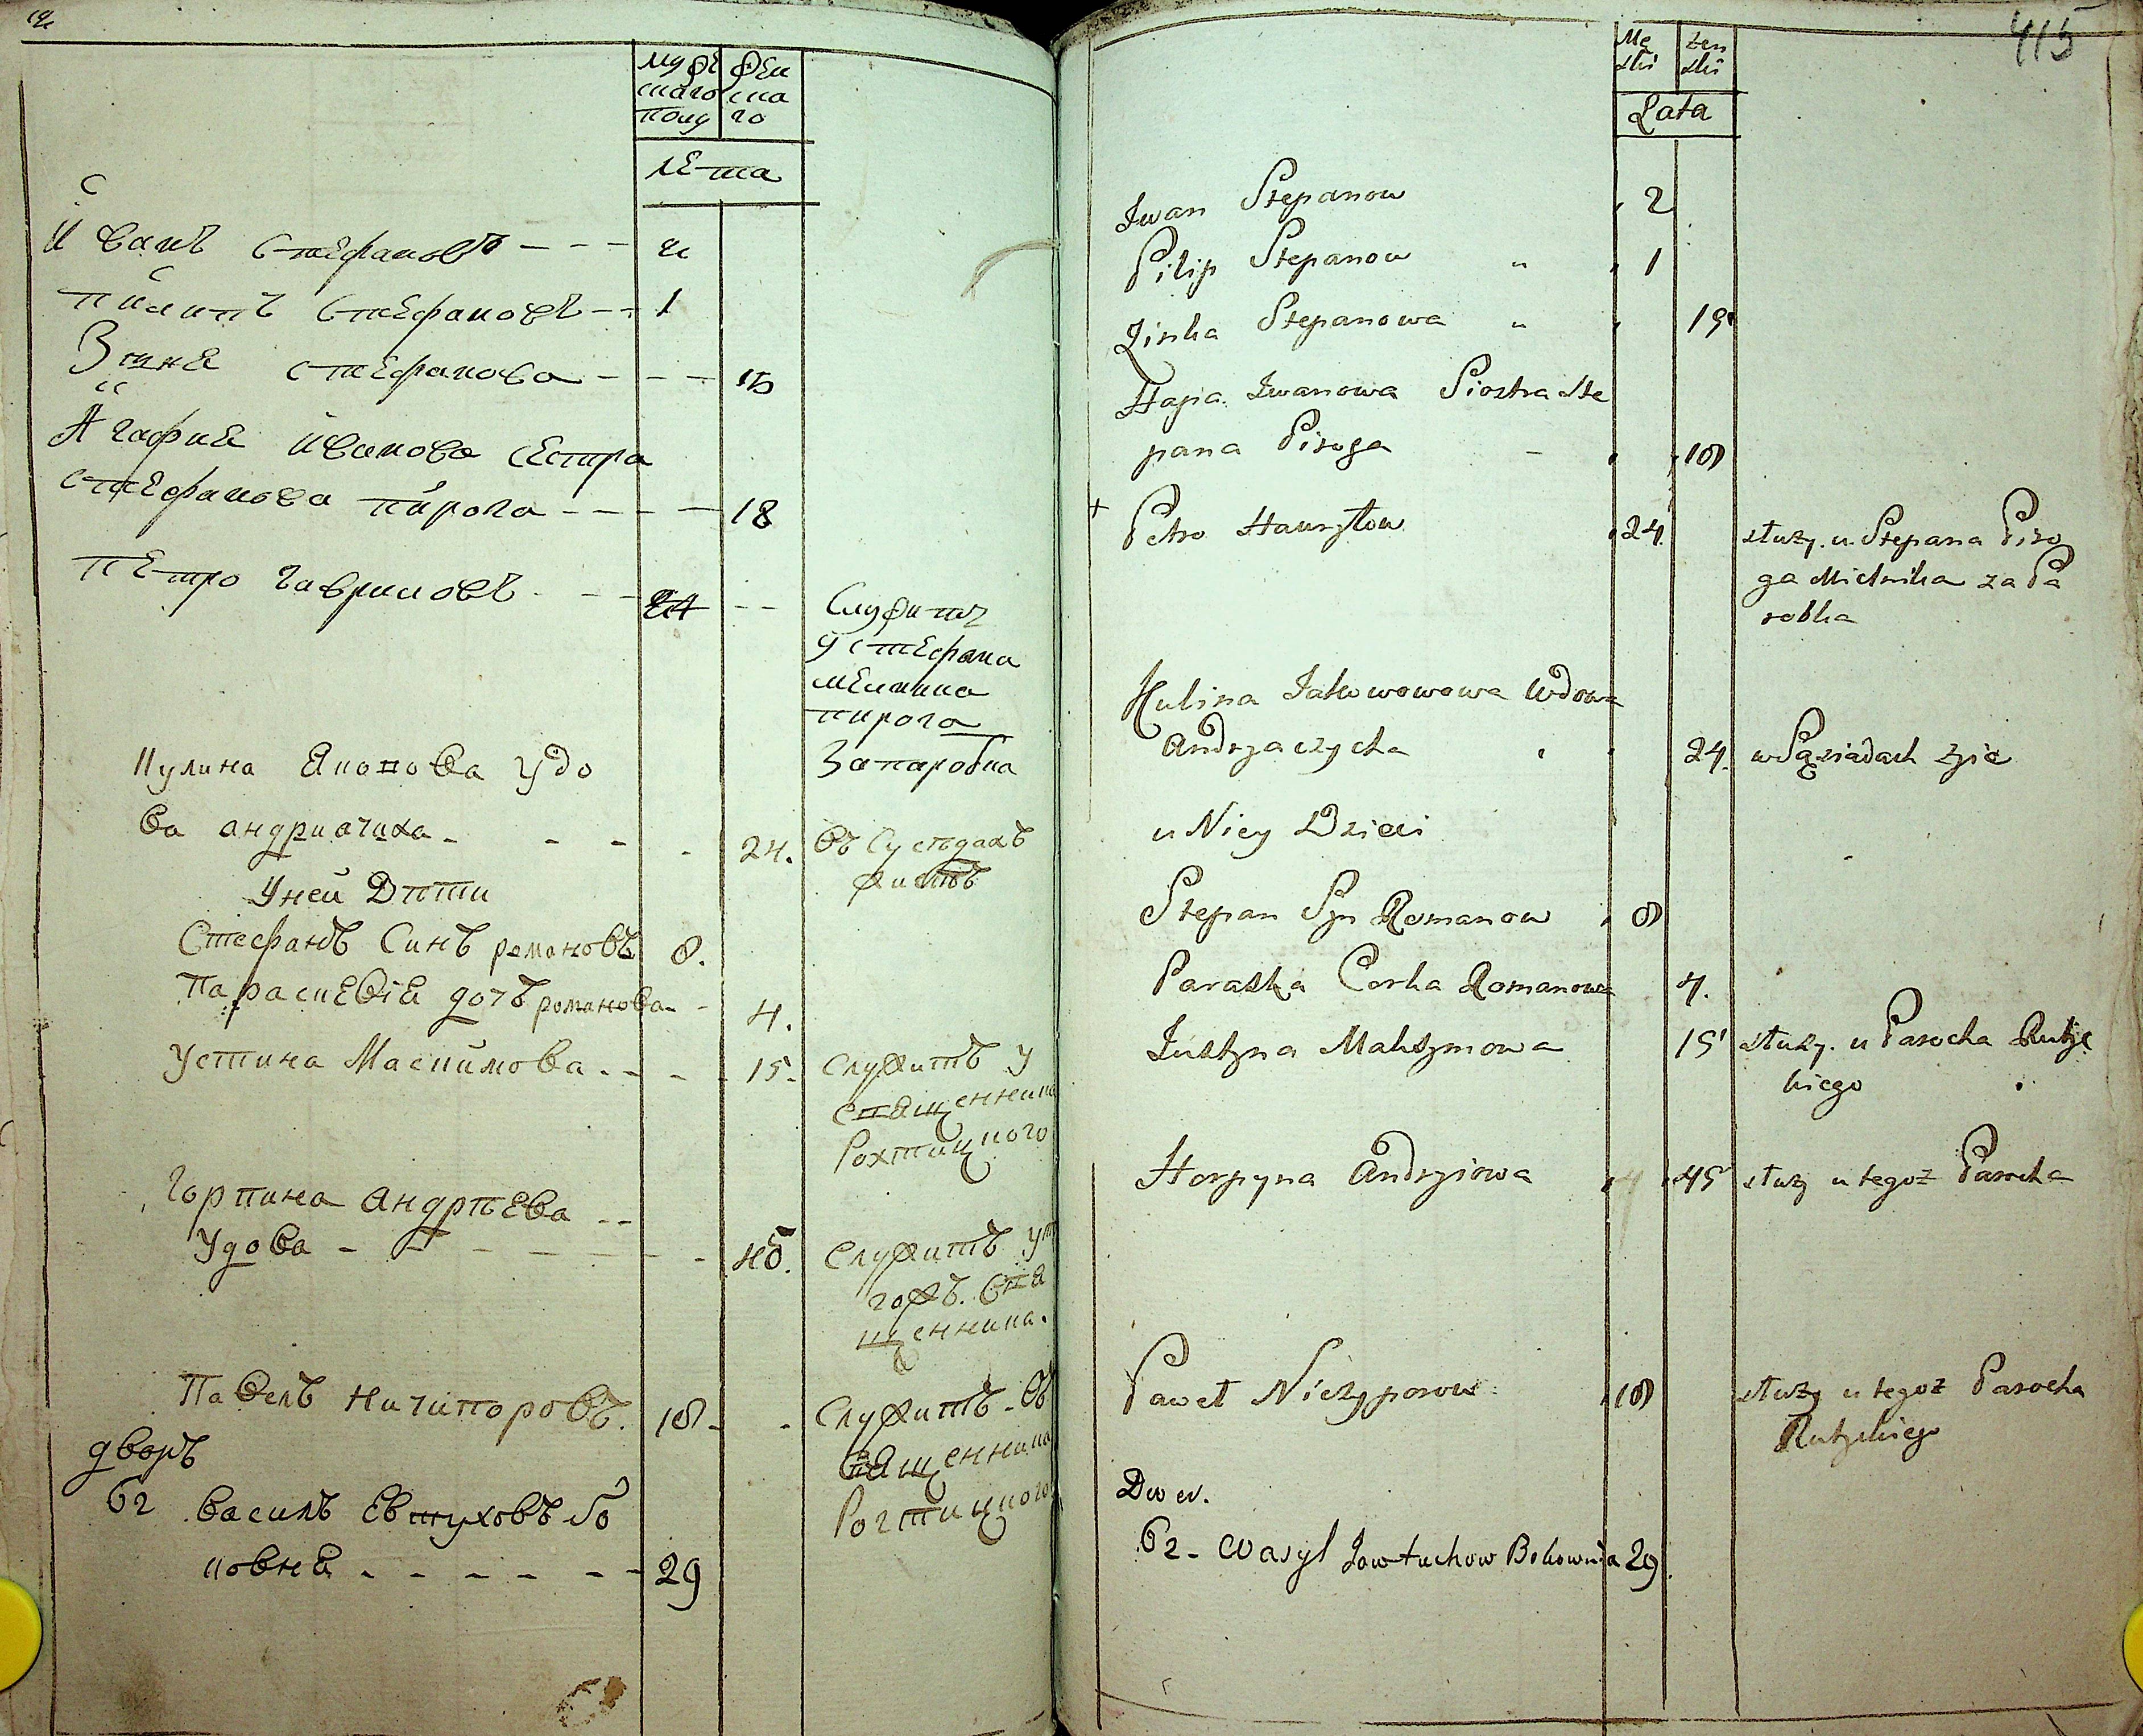 мужескаго полу
женскаго
лета
Иванъ Стефановъ - - - 2
Пилипъ Стефановъ - - 1
Зинка Стефанова - - - 15
Агафия Иванова сестра
Стефанова Пирога - - - - 18
Петро Гавриловъ - - 24 - - Служитъ
у Стефана
мелника
Пирога
за паробка
Кулина Яковова удо
ва Андриачиха - - - - 24. въ сусѣдахъ
житъ
У ней Дѣти
Стефанъ Синъ романовъ 8.
Параскевія дочъ романова - - 4.
Устина Максимова - - - - 15. служитъ у
священника
Горпина Андрѣева - -
Удова - - - - - - 45. служитъ у т
гожъ. свя
щенника.
Павелъ Ничипоровъ. 18 - - служитъ
священника
дворъ
62 Василъ Евтуховъ Бо
ковня - - - - - - 29
415
Męski
żenski
Lata
Iwan Stepanow 2
Pilip Stepanow " 1
Zinka Stepanowa " 19
Hapia Iwanowa Siostra Ste
pana Piroga - 18
+ Petro Hawryłow 24 służy. u Stepana Piro
ga Mielnika za Pa
robka
Kulina Jakowowowa Wdowa
Andrzaczycha 24. w Sąsiadach żyie
u Niey Dzieci
Stepan Syn Romanow 8
Paraska Corka Romanowa 4.
Justyna Maksymowa 15 służy. u Parocha Rutyc
kiego
Horpyna Andrziowa 45 służy u tegoż Parocha
Paweł Niczyporow 18 służy u tegoż Parocha
Rutyckiego
Dwor.
62 - Wasyl Jowtuchow Bokownia 29